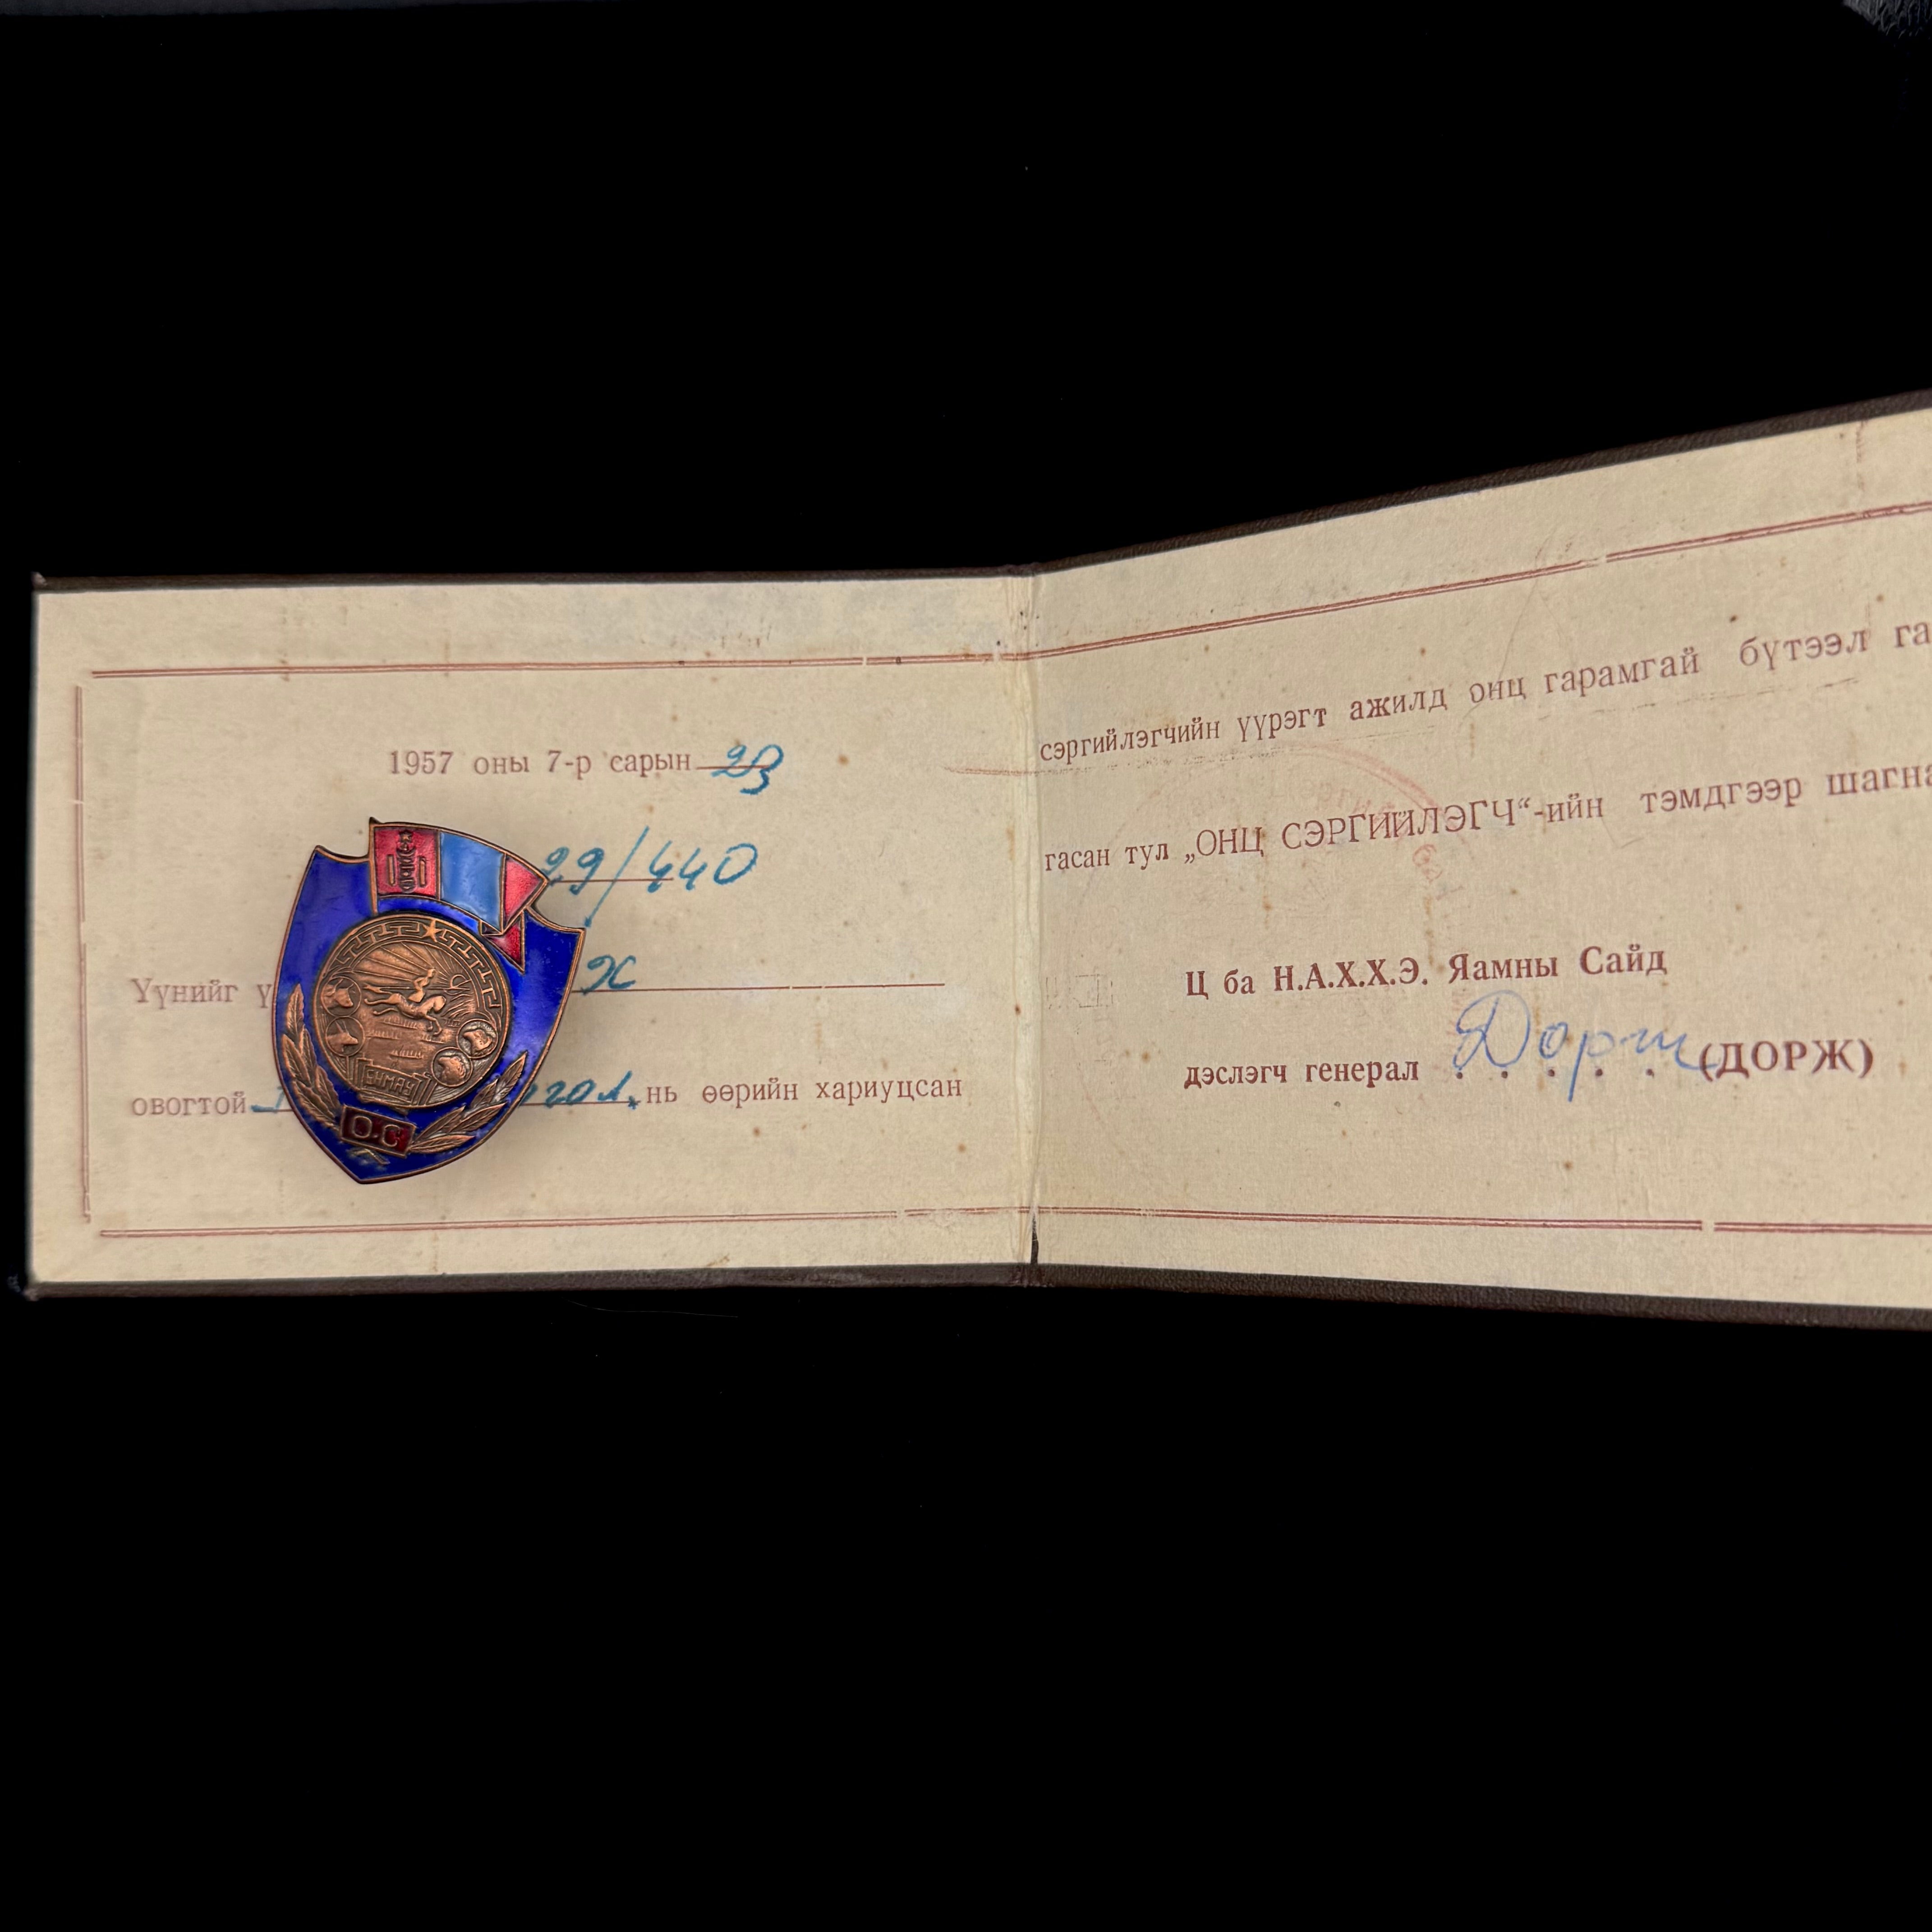 1957 оны 7-р сарын 23
29/440
Үүнийг
овогтой нь өөрийн хариуцсан
БНМАУ
О.С
сэргийлэгчийн үүрэгт ажилд онц гарамгай бүтээл га
гасан тул „ОНЦ СЭРГИЙЛЭГЧ“-ийн тэмдгээр шагна
Ц ба Н.А.Х.Х.Э. Яамны Сайд
дэслэгч генерал Дорж (ДОРЖ)